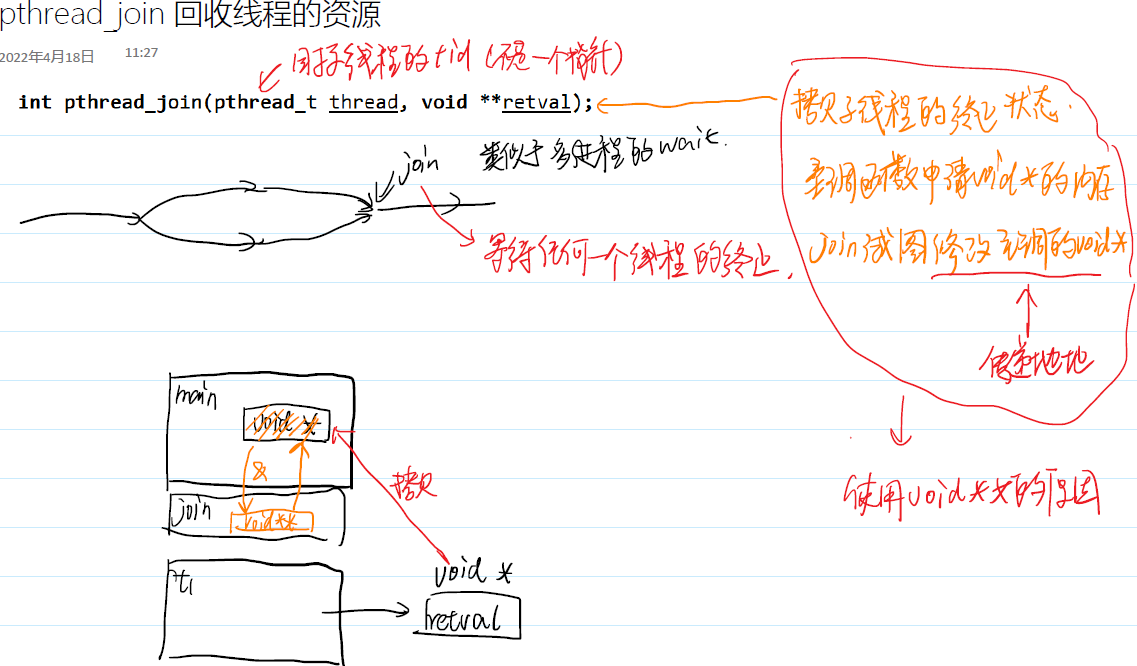 pthread_join 回收线程的资源
2022年4月18日 11:27
线程的tid (不是一个指针)
int pthread_join(pthread_t thread, void **retval);
拷贝子线程的终止状态.
主调函数申请void*的内存
join试图修改主调的void*
传递地址
使用void**的原因
join
类似于多进程的wait.
等待任何一个线程的终止,
main
void *
&
join
void**
拷贝
t1
void *
retval